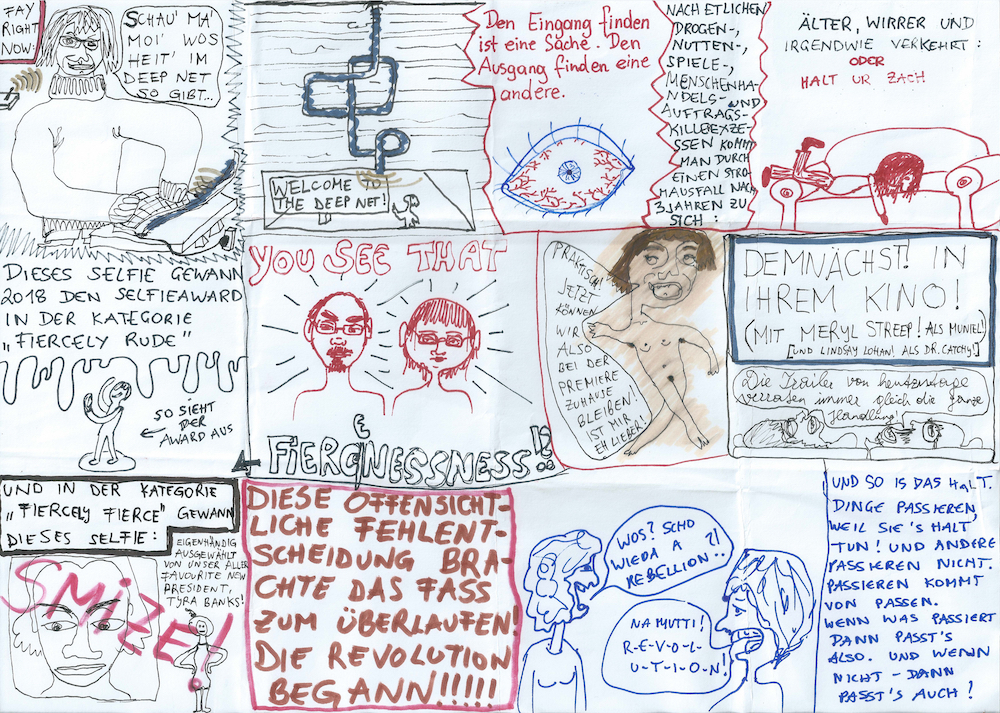 FAY
RIGHT
NOW:
SCHAU' MA'
MOI' WOS
HEIT' IM
DEEP NET
SO GIBT...
WELCOME TO
THE DEEP NET!
Den Eingang finden
ist eine Sache. Den
Ausgang finden eine
andere.
NACH ETLICHEN
DROGEN-,
NUTTEN-,
SPIELE-,
MENSCHENHA-
NDELS- UND
AUFTRAGS-
KILLEREXZE-
SSEN KOMMT
MAN DURCH
EINEN STRO-
MAUSFALL NACH
3 JAHREN ZU
SICH:
ÄLTER, WIRRER UND
IRGENDWIE VERKEHRT:
ODER
HALT UR ZACH
DIESES SELFIE GEWANN
2018 DEN SELFIEAWARD
IN DER KATEGORIE
„FIERCELY RUDE"
SO SIEHT
DER
AWARD AUS
YOU SEE THAT
FIERCENESSNESS!?
PRAKTISCH!
JETZT
KÖNNEN
WIR
ALSO
BEI DER
PREMIERE
ZUHAUSE
BLEIBEN!
IST MIR
EH LIEBER!
DEMNÄCHST! IN
IHREM KINO!
(MIT MERYL STREEP! ALS MUNIEL!)
[UND LINDSAY LOHAN! ALS DR. CATCHY!]
Die Trailer von heutzutage
verraten immer gleich die ganze
Handlung!
UND IN DER KATEGORIE
„FIERCELY FIERCE" GEWANN
DIESES SELFIE:
EIGENHÄNDIG
AUSGEWÄHLT
VON UNSER ALLER
FAVOURITE NEW
PRESIDENT,
TYRA BANKS!
SMIZE!
DIESE OFFENSICHT-
LICHE FEHLENT-
SCHEIDUNG BRA-
CHTE DAS FASS
ZUM ÜBERLAUFEN!
DIE REVOLUTION
BEGANN!!!!!
WOS? SCHO
WIEDA A ?!
REBELLION..
NA MUTTI!
R-E-V-O-L-
U-T-I-O-N!
UND SO IS DAS HALT.
DINGE PASSIEREN,
WEIL SIE'S HALT
TUN! UND ANDERE
PASSIEREN NICHT.
PASSIEREN KOMMT
VON PASSEN.
WENN WAS PASSIERT
DANN PASST'S
ALSO. UND WENN
NICHT - DANN
PASST'S AUCH!